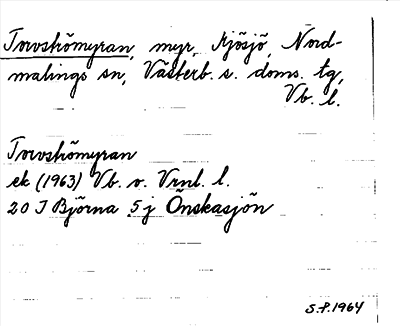 Torvströmyran, myr, Mjösjö, Nord-
malings sn, Västerb. s. doms. tg,
Vb. l.
Torvströmyran
ek (1963) Vb. o. Vrnl. l.
20 I Björna 5 j Önskasjön
S.P. 1964